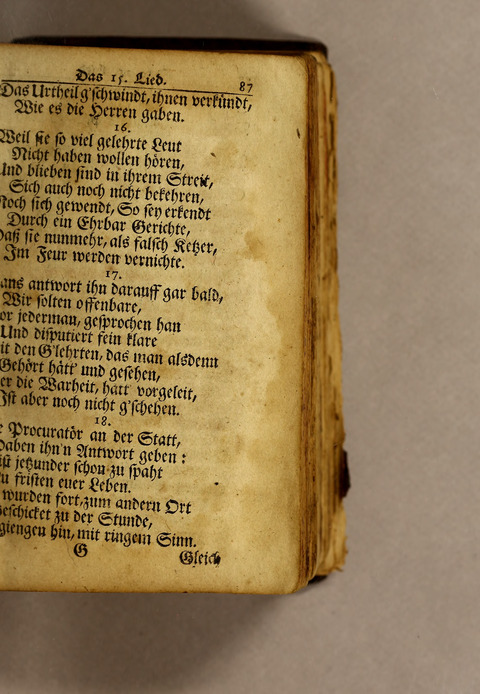 Das 15. Lied. 87
Das Urtheil g'schwindt, ihnen verkündt,
Wie es die Herren gaben.
16.
Weil sie so viel gelehrte Leut
Nicht haben wollen hören,
Und blieben sind in ihrem Streit,
Sich auch noch nicht bekehren,
Noch sich gewendt, So sey erkendt
Durch ein Ehrbar Gerichte,
Daß sie nunmehr, als falsch Ketzer,
Im Feur werden vernichte.
17.
ans antwort ihn darauff gar bald,
Wir solten offenbare,
or jederman, gesprochen han
Und disputiert fein klare
it den G'lehrten, das man alsdenn
Gehört hätt' und gesehen,
er die Warheit, hätt' vorgeleit,
Ist aber noch nicht g'schehen.
18.
e Procuratör an der Statt,
haben ihn'n Antwort geben:
ist jetzunder schon zu spaht
zu fristen euer Leben.
wurden fort, zum andern Ort
Geschicket zu der Stunde,
giengen hin, mit ringem Sinn.
G Gleich